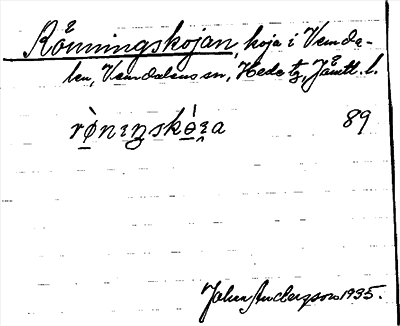 Rönningskojan, koja i Vemda-
len, Vemdalens sn, Hede tg, Jämtl. l.
89
John Andersson 1935.